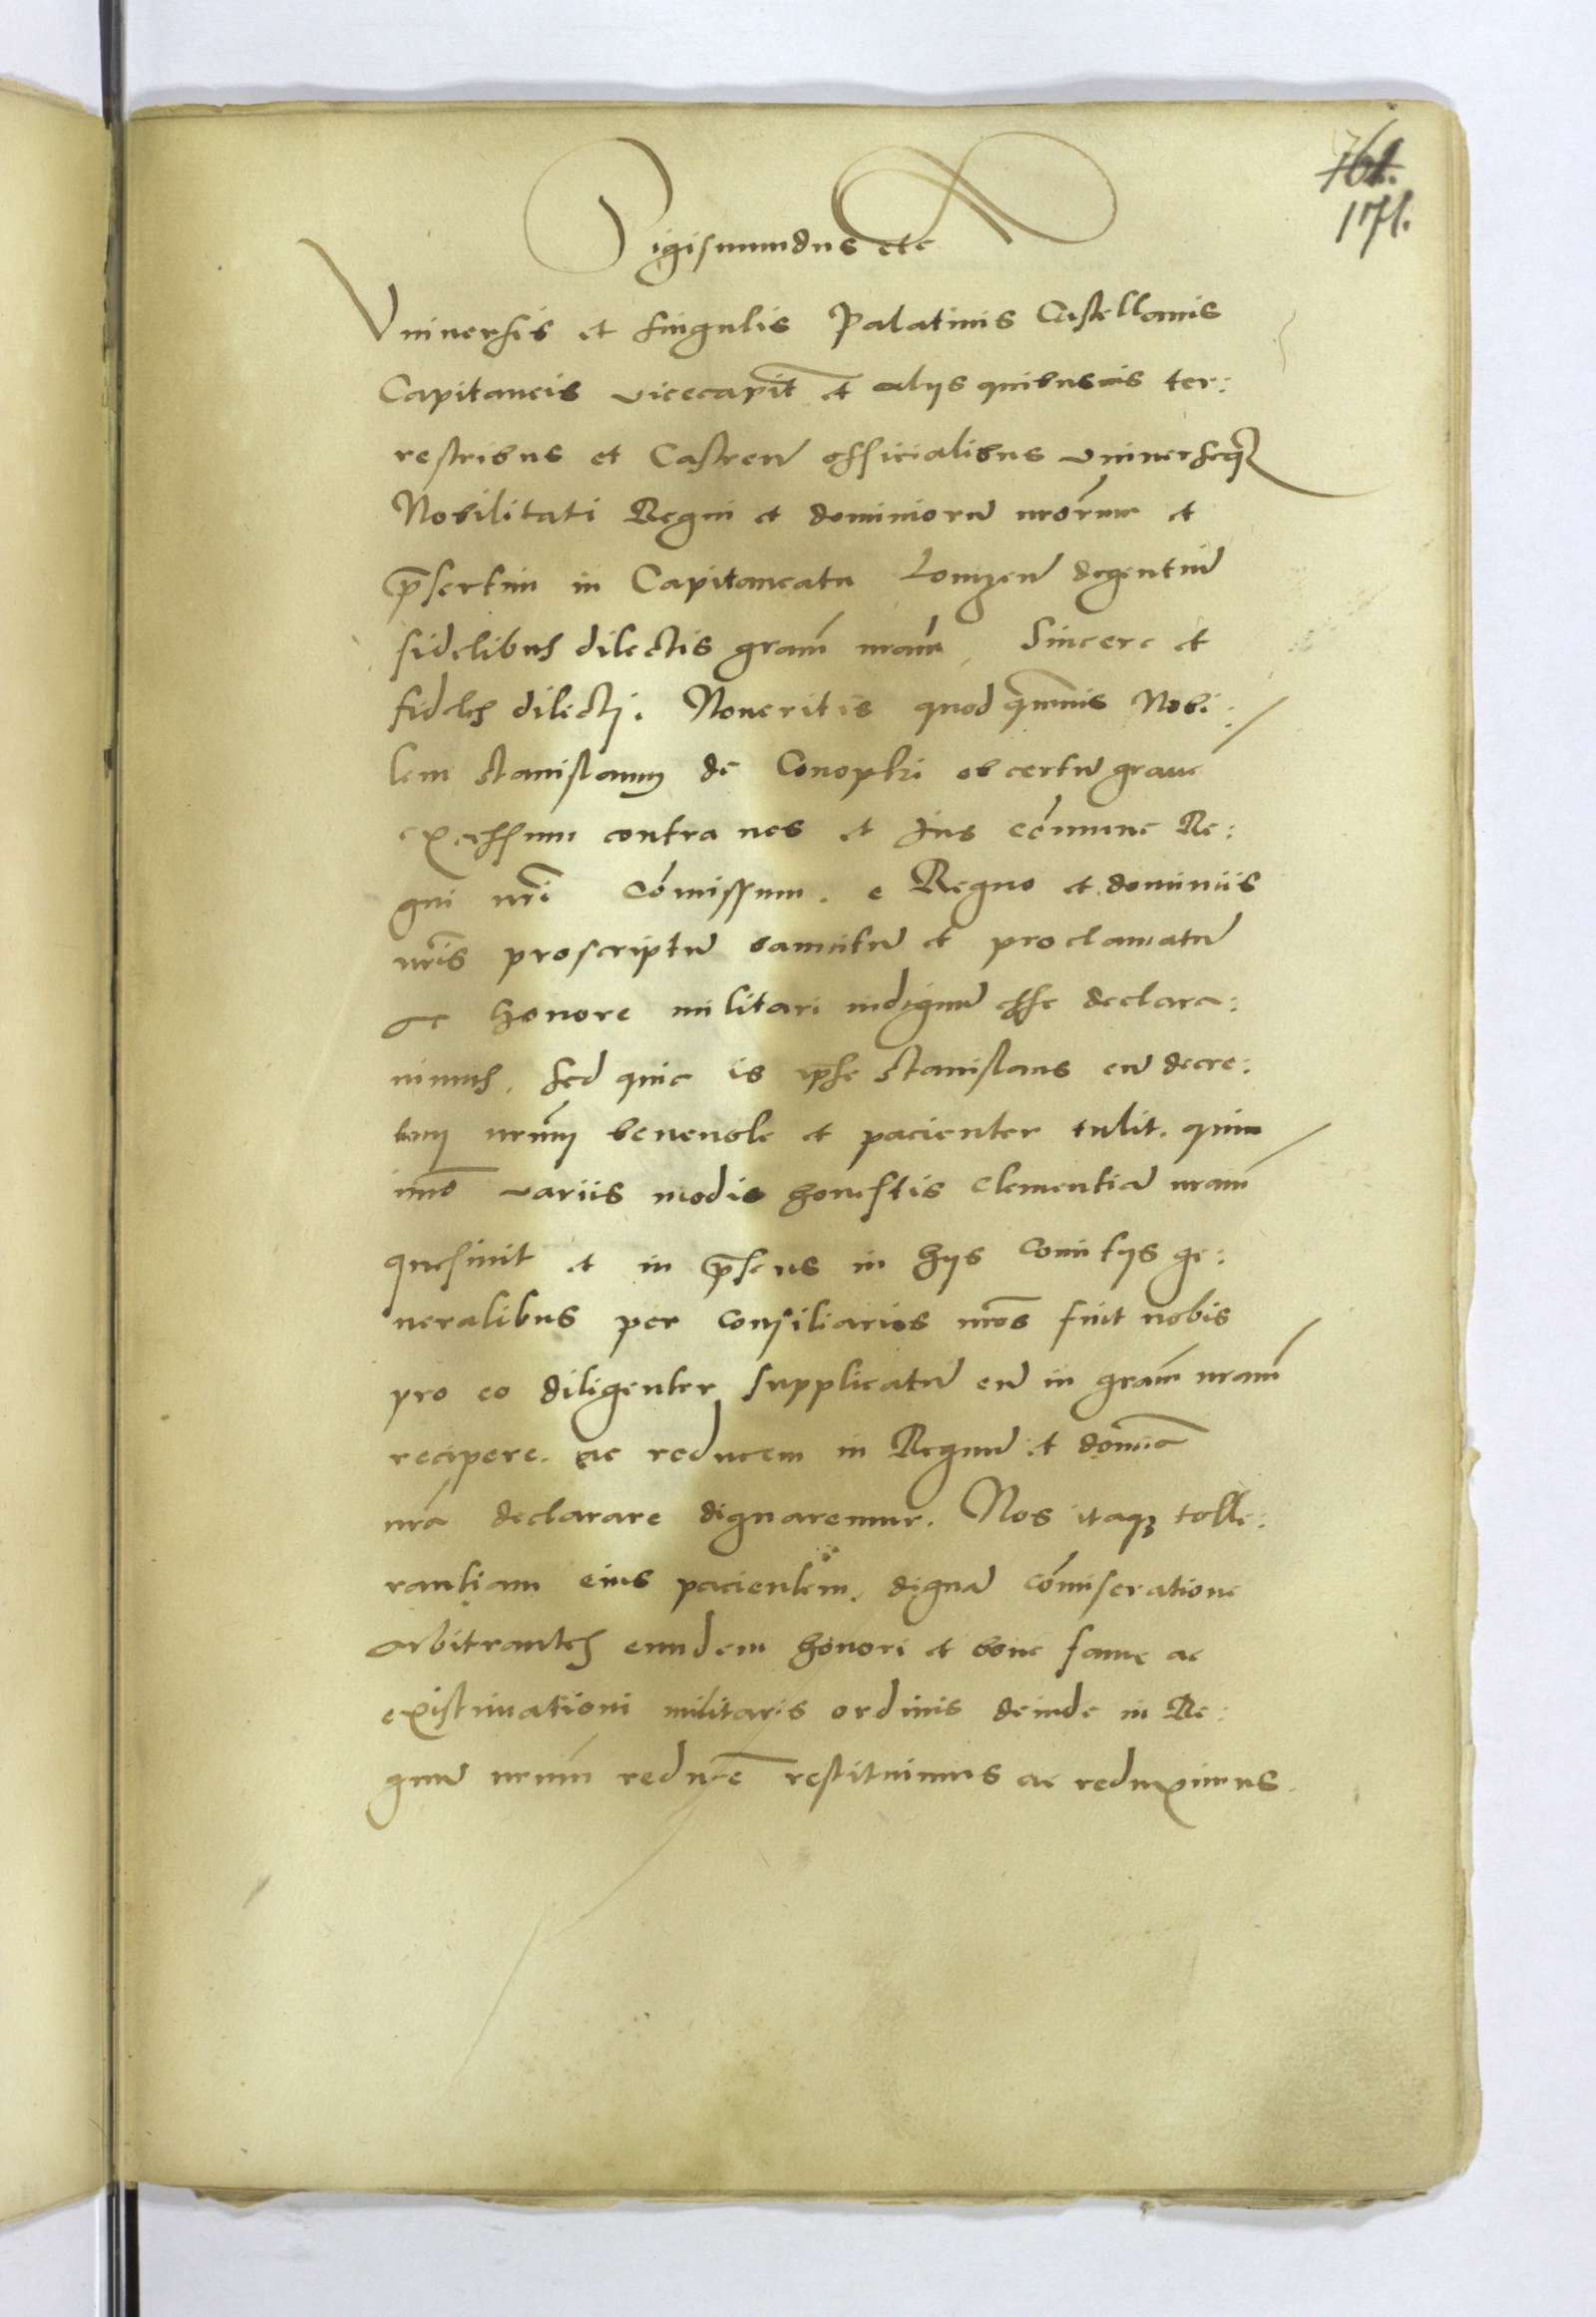 161.
171.
Sigismundus etc
Vniuersis et singulis Palatinis Castellanis
Capitaneis vicecapit̃ et alijs quibusuis ter:
restribus et Castreñ officialibus vniuerseq3
Nobilitati Regni et dominiorũ nrõrum et
p̃sertim in Capitaneatu Lomzeñ degentiũ
fidelibus dilectis grãm nrãm, Sincere et
fideles dilecti. Noueritis quod q̃muis Nobi:
lem Stanislaum de Conopki ob certũ graue
excessum contra nos et Jus cõmune Re:
gni nr̃i Cõmissum. e Regno et dominiis
nr̃is proscriptũ bannitũ et proclamatũ
ac honore militari indignũ esse declara:
uimus. sed quia is ip̃se Stanislaus eũ decre:
tum nrũm beneuole et pacienter tulit. quin
imõ variis modis honestis clementiã nrãm
quesiuit et in p̃sens in hijs Comitijs ge:
neralibus per Consiliarios nrõs fuit nobis
pro eo diligenter supplicatũ eũ in grãm nrãm
recipere. ac reducem in Regnũ et domĩa
nrã declarare dignaremur. Nos itaq3 tolle:
rantiam eius pacientem. dignã cõmiseratione
arbitrantes eundem honori et bone fame ac
existimationi militaris ordinis deinde in Re:
gnũ nrũm reducẽ restituimus ac reduximus.